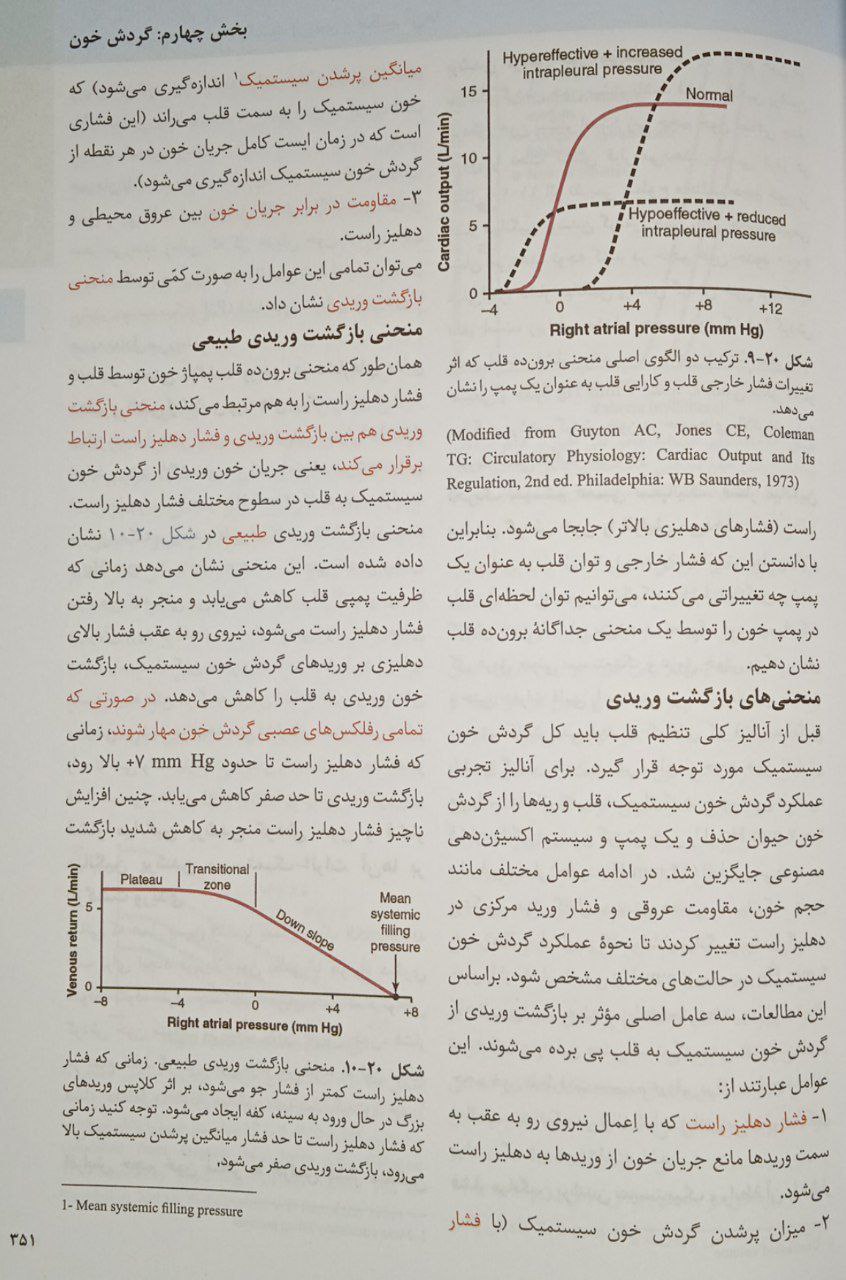 بخش چهارم: گردش خون
Hypereffective + increased
intrapleural pressure
Normal
Hypoeffective + reduced
intrapleural pressure
Cardiac output (L/min)
15
10
5
0
–4
0
+4
+8
+12
Right atrial pressure (mm Hg)
شکل ۲۰-۹. ترکیب دو الگوی اصلی منحنی برون‌ده قلب که اثر
تغییرات فشار خارجی قلب و کارایی قلب به عنوان یک پمپ را نشان
می‌دهد.
(Modified from Guyton AC, Jones CE, Coleman
TG: Circulatory Physiology: Cardiac Output and Its
Regulation, 2nd ed. Philadelphia: WB Saunders, 1973)
راست (فشارهای دهلیزی بالاتر) جابجا می‌شود. بنابراین
با دانستن این که فشار خارجی و توان قلب به عنوان یک
پمپ چه تغییراتی می‌کنند، می‌توانیم توان لحظه‌ای قلب
در پمپ خون را توسط یک منحنی جداگانهٔ برون‌ده قلب
نشان دهیم.
منحنی‌های بازگشت وریدی
قبل از آنالیز کلی تنظیم قلب باید کل گردش خون
سیستمیک مورد توجه قرار گیرد. برای آنالیز تجربی
عملکرد گردش خون سیستمیک، قلب و ریه‌ها را از گردش
خون حیوان حذف و یک پمپ و سیستم اکسیژن‌دهی
مصنوعی جایگزین شد. در ادامه عوامل مختلف مانند
حجم خون، مقاومت عروقی و فشار ورید مرکزی در
دهلیز راست تغییر کردند تا نحوهٔ عملکرد گردش خون
سیستمیک در حالت‌های مختلف مشخص شود. براساس
این مطالعات، سه عامل اصلی مؤثر بر بازگشت وریدی از
گردش خون سیستمیک به قلب پی برده می‌شوند. این
عوامل عبارتند از:
۱- فشار دهلیز راست که با اِعمال نیروی رو به عقب به
سمت وریدها مانع جریان خون از وریدها به دهلیز راست
می‌شود.
۲- میزان پرشدن گردش خون سیستمیک (با فشار
میانگین پرشدن سیستمیک۱ اندازه‌گیری می‌شود) که
خون سیستمیک را به سمت قلب می‌راند (این فشاری
است که در زمان ایست کامل جریان خون در هر نقطه از
گردش خون سیستمیک اندازه‌گیری می‌شود).
۳- مقاومت در برابر جریان خون بین عروق محیطی و
دهلیز راست.
می‌توان تمامی این عوامل را به صورت کمّی توسط منحنی
بازگشت وریدی نشان داد.
منحنی بازگشت وریدی طبیعی
همان‌طور که منحنی برون‌ده قلب پمپاژ خون توسط قلب و
فشار دهلیز راست را به هم مرتبط می‌کند، منحنی بازگشت
وریدی هم بین بازگشت وریدی و فشار دهلیز راست ارتباط
برقرار می‌کند، یعنی جریان خون وریدی از گردش خون
سیستمیک به قلب در سطوح مختلف فشار دهلیز راست.
منحنی بازگشت وریدی طبیعی در شکل ۲۰-۱۰ نشان
داده شده است. این منحنی نشان می‌دهد زمانی که
ظرفیت پمپی قلب کاهش می‌یابد و منجر به بالا رفتن
فشار دهلیز راست می‌شود، نیروی رو به عقب فشار بالای
دهلیزی بر وریدهای گردش خون سیستمیک، بازگشت
خون وریدی به قلب را کاهش می‌دهد. در صورتی که
تمامی رفلکس‌های عصبی گردش خون مهار شوند، زمانی
که فشار دهلیز راست تا حدود +۷ mm Hg بالا رود،
بازگشت وریدی تا حد صفر کاهش می‌یابد. چنین افزایش
ناچیز فشار دهلیز راست منجر به کاهش شدید بازگشت
Plateau
Transitional
zone
Down slope
Mean
systemic
filling
pressure
Venous return (L/min)
5
0
–8
–4
0
+4
+8
Right atrial pressure (mm Hg)
شکل ۲۰-۱۰. منحنی بازگشت وریدی طبیعی. زمانی که فشار
دهلیز راست کمتر از فشار جو می‌شود، بر اثر کلاپس وریدهای
بزرگ در حال ورود به سینه، کفه ایجاد می‌شود. توجه کنید زمانی
که فشار دهلیز راست تا حد فشار میانگین پرشدن سیستمیک بالا
می‌رود، بازگشت وریدی صفر می‌شود.
1- Mean systemic filling pressure
۳۵۱